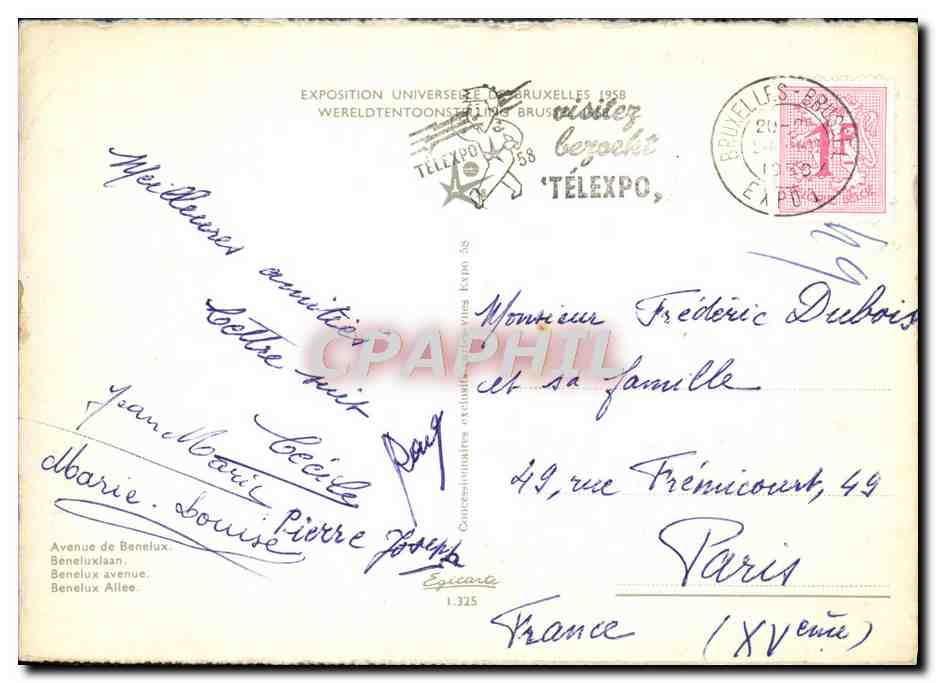 EXPOSITION UNIVERSELLE DE BRUXELLES 1958
WERELDTENTOONSTELLING BRUSSEL
TÉLEXPO
58
visitez
bezoekt
'TÉLEXPO,
BRUXELLES-BRUSSEL
EXPO 1
1F
BELGIE
Meilleures amitiés
Lettre suit
Cécile
Jean Marie
Marie-Louise
Pierre Joseph
Monsieur Frédéric Dubois
et sa famille
49, rue Frémicourt, 49
Paris
France (XVème)
Concessionnaires exclusifs cartes vues Expo 58
Avenue de Benelux.
Beneluxlaan.
Benelux avenue.
Benelux Allee.
Egicarte
1.325
CPAPHIL